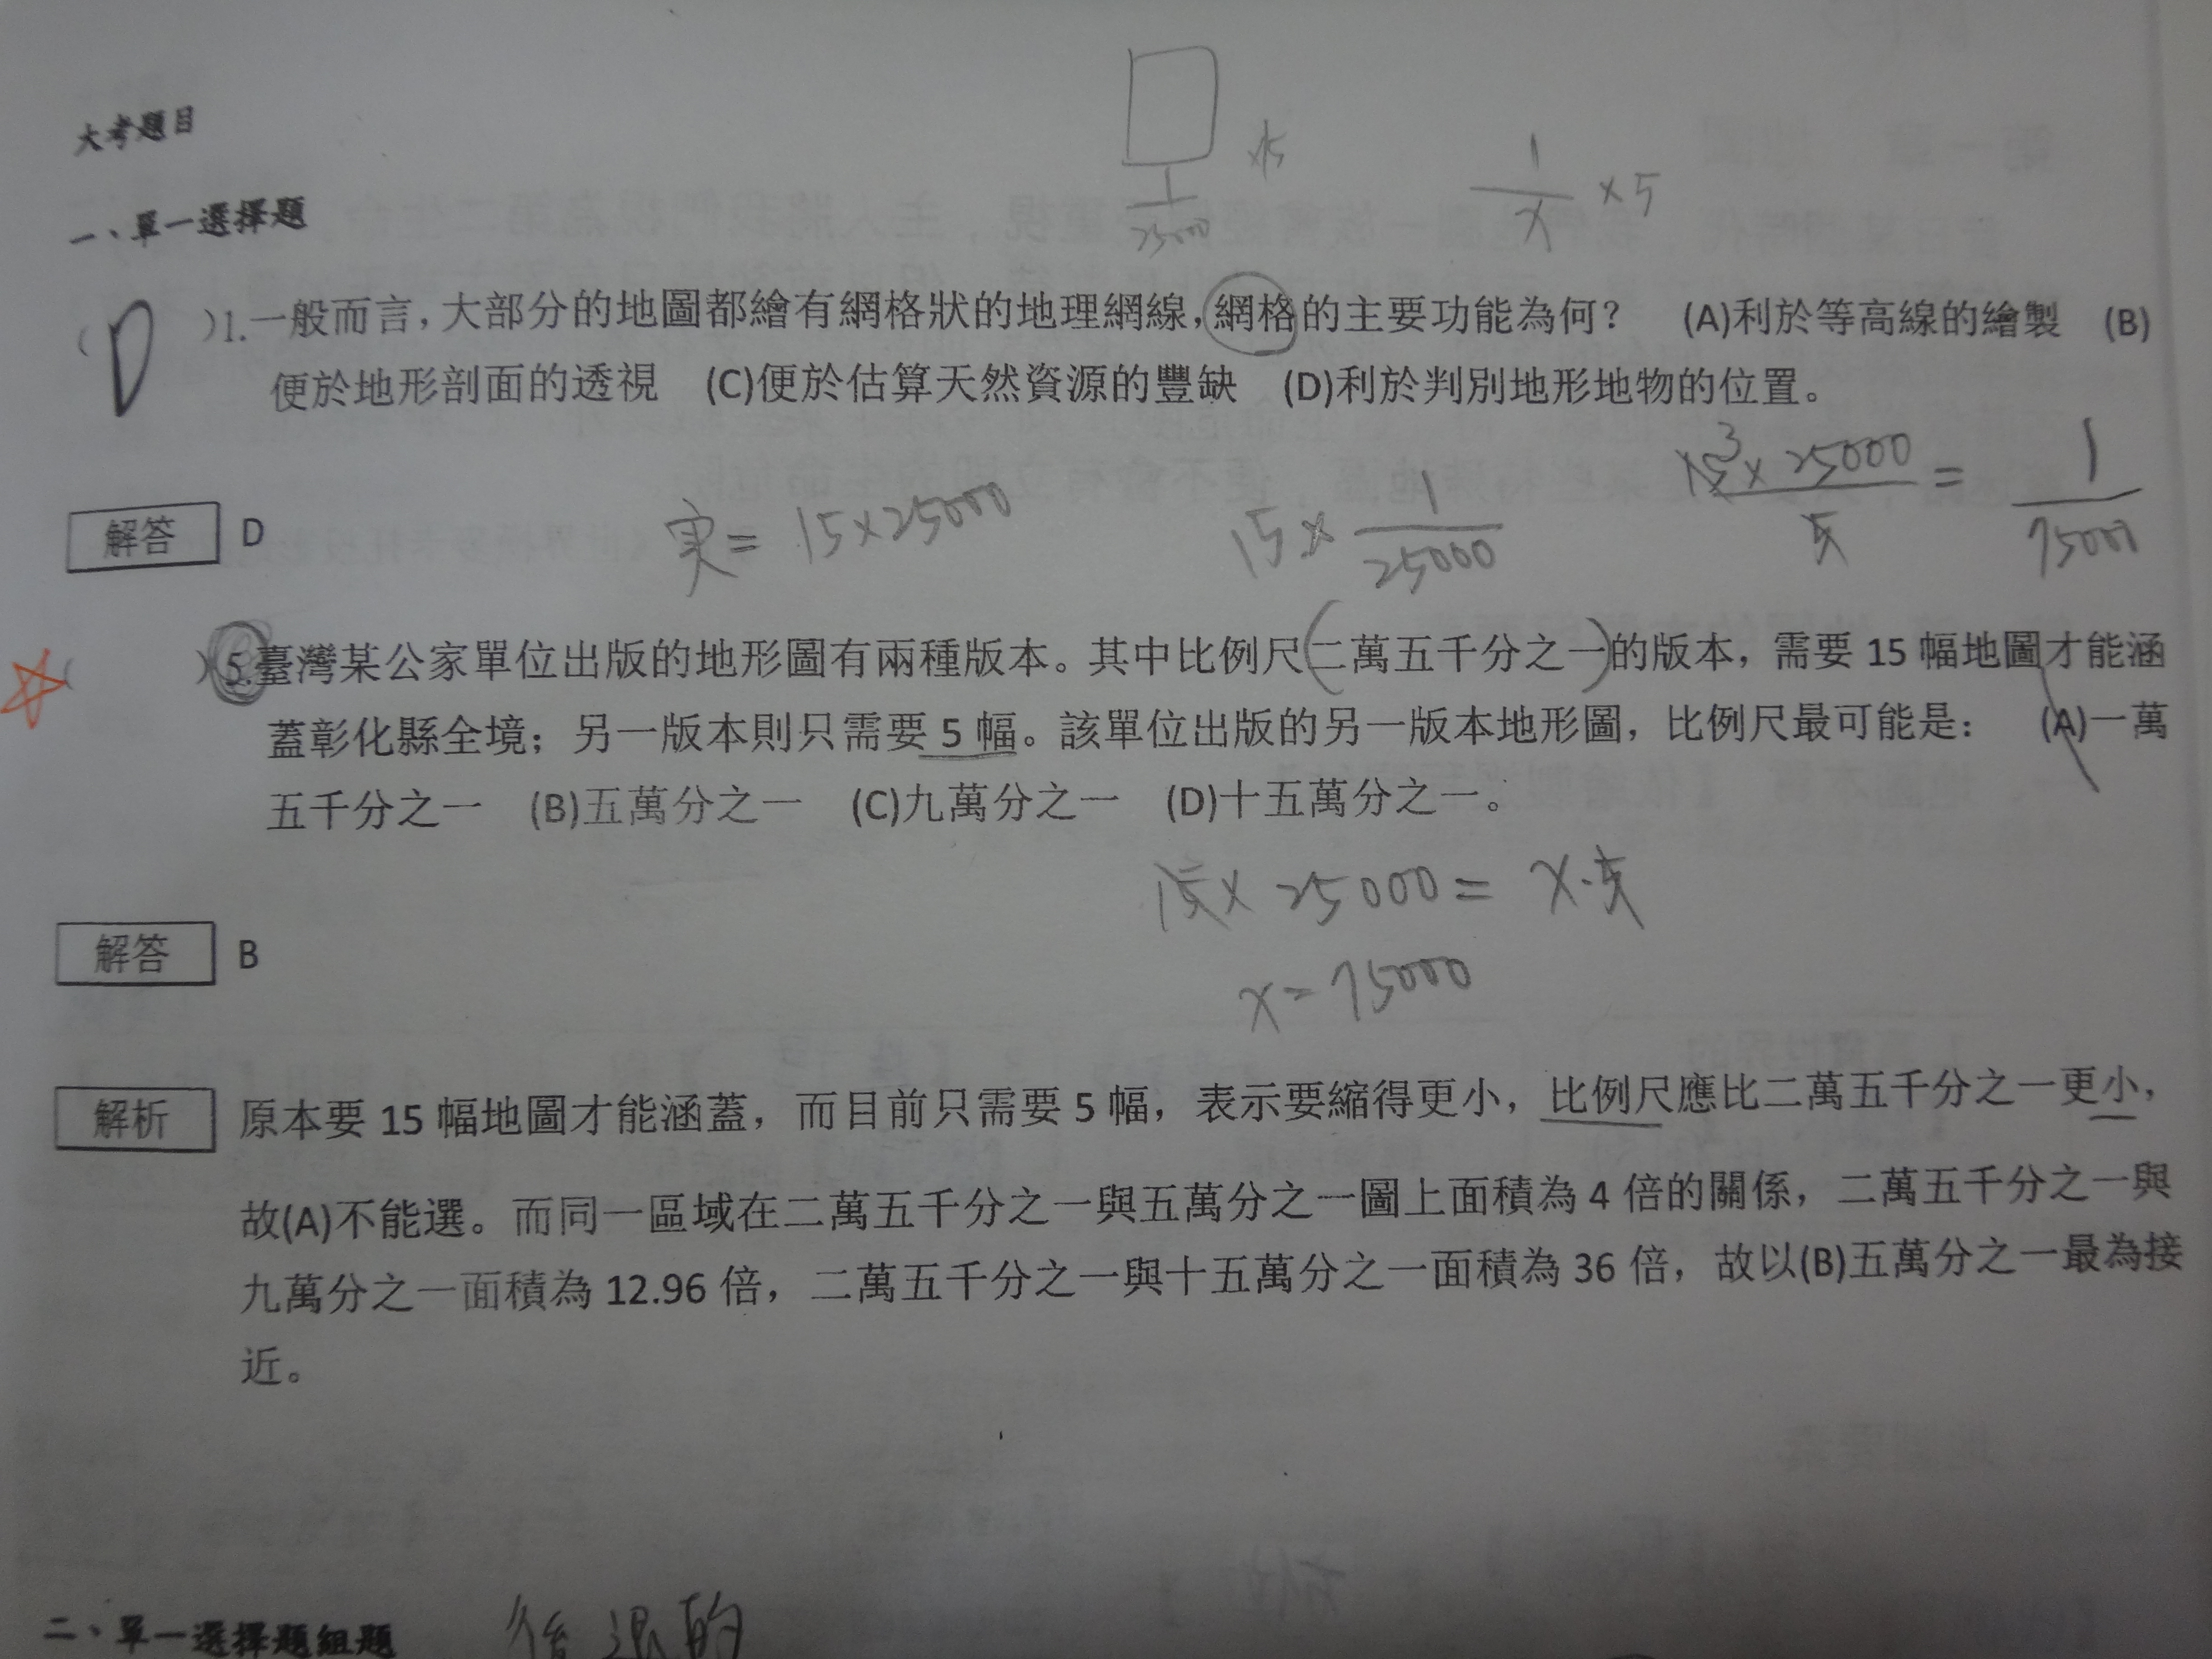 大考題目
一、單一選擇題
1/25000 ×15
1/x ×5
( D )1.一般而言，大部分的地圖都繪有網格狀的地理網線，網格的主要功能為何？ (A)利於等高線的繪製 (B)
便於地形剖面的透視 (C)便於估算天然資源的豐缺 (D)利於判別地形地物的位置。
15³×25000/5 = 1/75000
解答 D
実= 15×25000
15× 1/25000
( )5.臺灣某公家單位出版的地形圖有兩種版本。其中比例尺(二萬五千分之一)的版本，需要 15 幅地圖才能涵
蓋彰化縣全境；另一版本則只需要 5 幅。該單位出版的另一版本地形圖，比例尺最可能是： (A)一萬
五千分之一 (B)五萬分之一 (C)九萬分之一 (D)十五萬分之一。
15× 25000= x·5
解答 B
x=75000
解析 原本要 15 幅地圖才能涵蓋，而目前只需要 5 幅，表示要縮得更小，比例尺應比二萬五千分之一更小，
故(A)不能選。而同一區域在二萬五千分之一與五萬分之一圖上面積為 4 倍的關係，二萬五千分之一與
九萬分之一面積為 12.96 倍，二萬五千分之一與十五萬分之一面積為 36 倍，故以(B)五萬分之一最為接
近。
二、單一選擇題組題 後退的